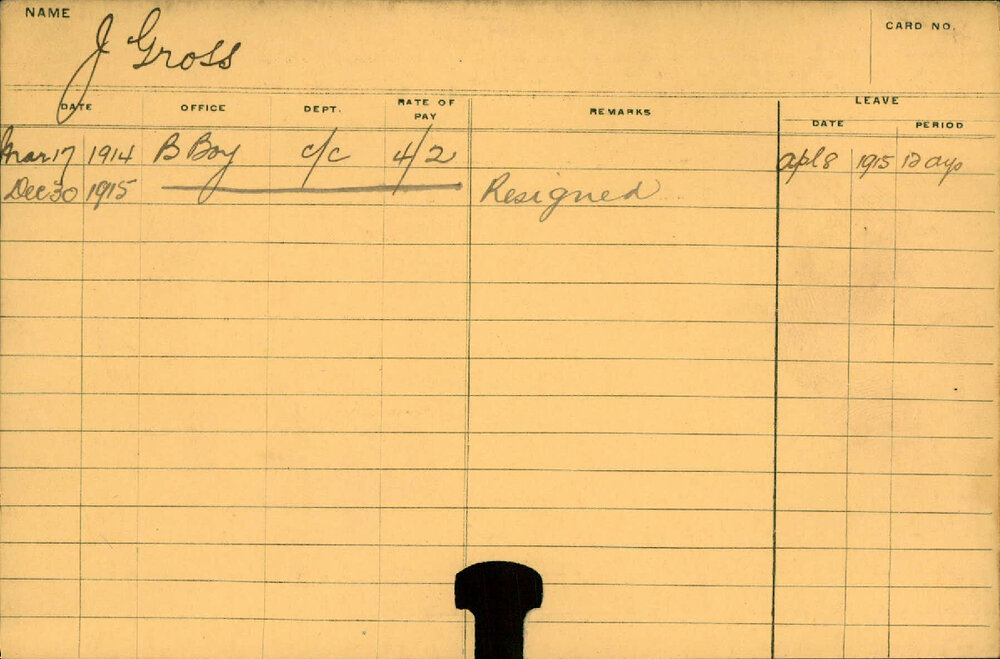 NAME
J Gross
CARD NO.
DATE OFFICE DEPT. RATE OF PAY REMARKS LEAVE
DATE PERIOD
Mar 17 1914 B Boy c/c 4/2 Apl 8 1915 12 days
Dec 30 1915 Resigned